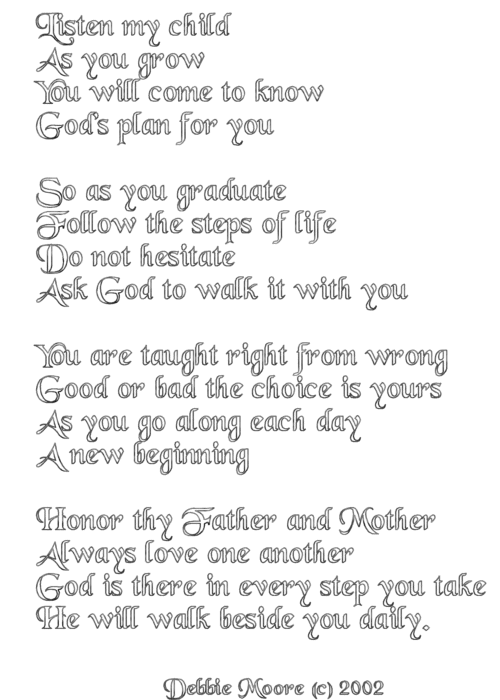 Listen my child
As you grow
You will come to know
God's plan for you

So as you graduate
Follow the steps of life
Do not hesitate
Ask God to walk it with you

You are taught right from wrong
Good or bad the choice is yours
As you go along each day
A new beginning

Honor thy Father and Mother
Always love one another
God is there in every step you take
He will walk beside you daily.

Debbie Moore (c) 2002